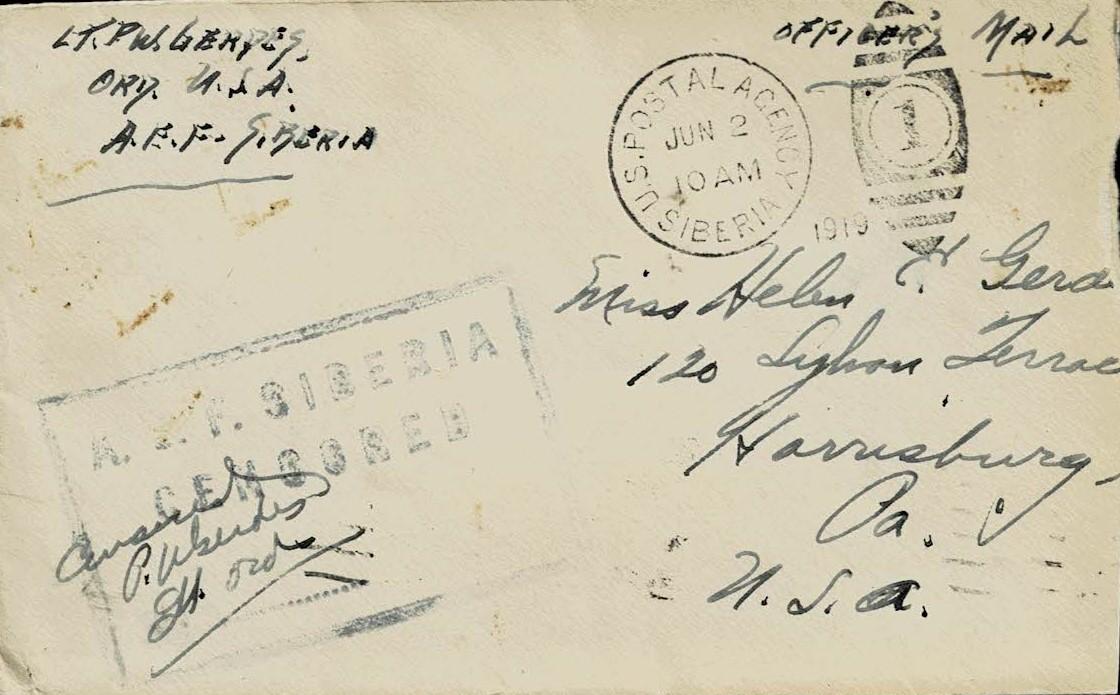 LT. P.W. GERDES,
ORD. U.S.A.
A.E.F. SIBERIA
OFFICER'S MAIL
U.S. POSTAL AGENCY
JUN 2
10 AM
SIBERIA
1919
1
Miss Helen Gerd
120 Sylvan Terrac
Harrisburg,
Pa.
U.S.A.
A.E.F. SIBERIA
CENSORED
Censored
P.W. Gerdes
Lt. Ord.